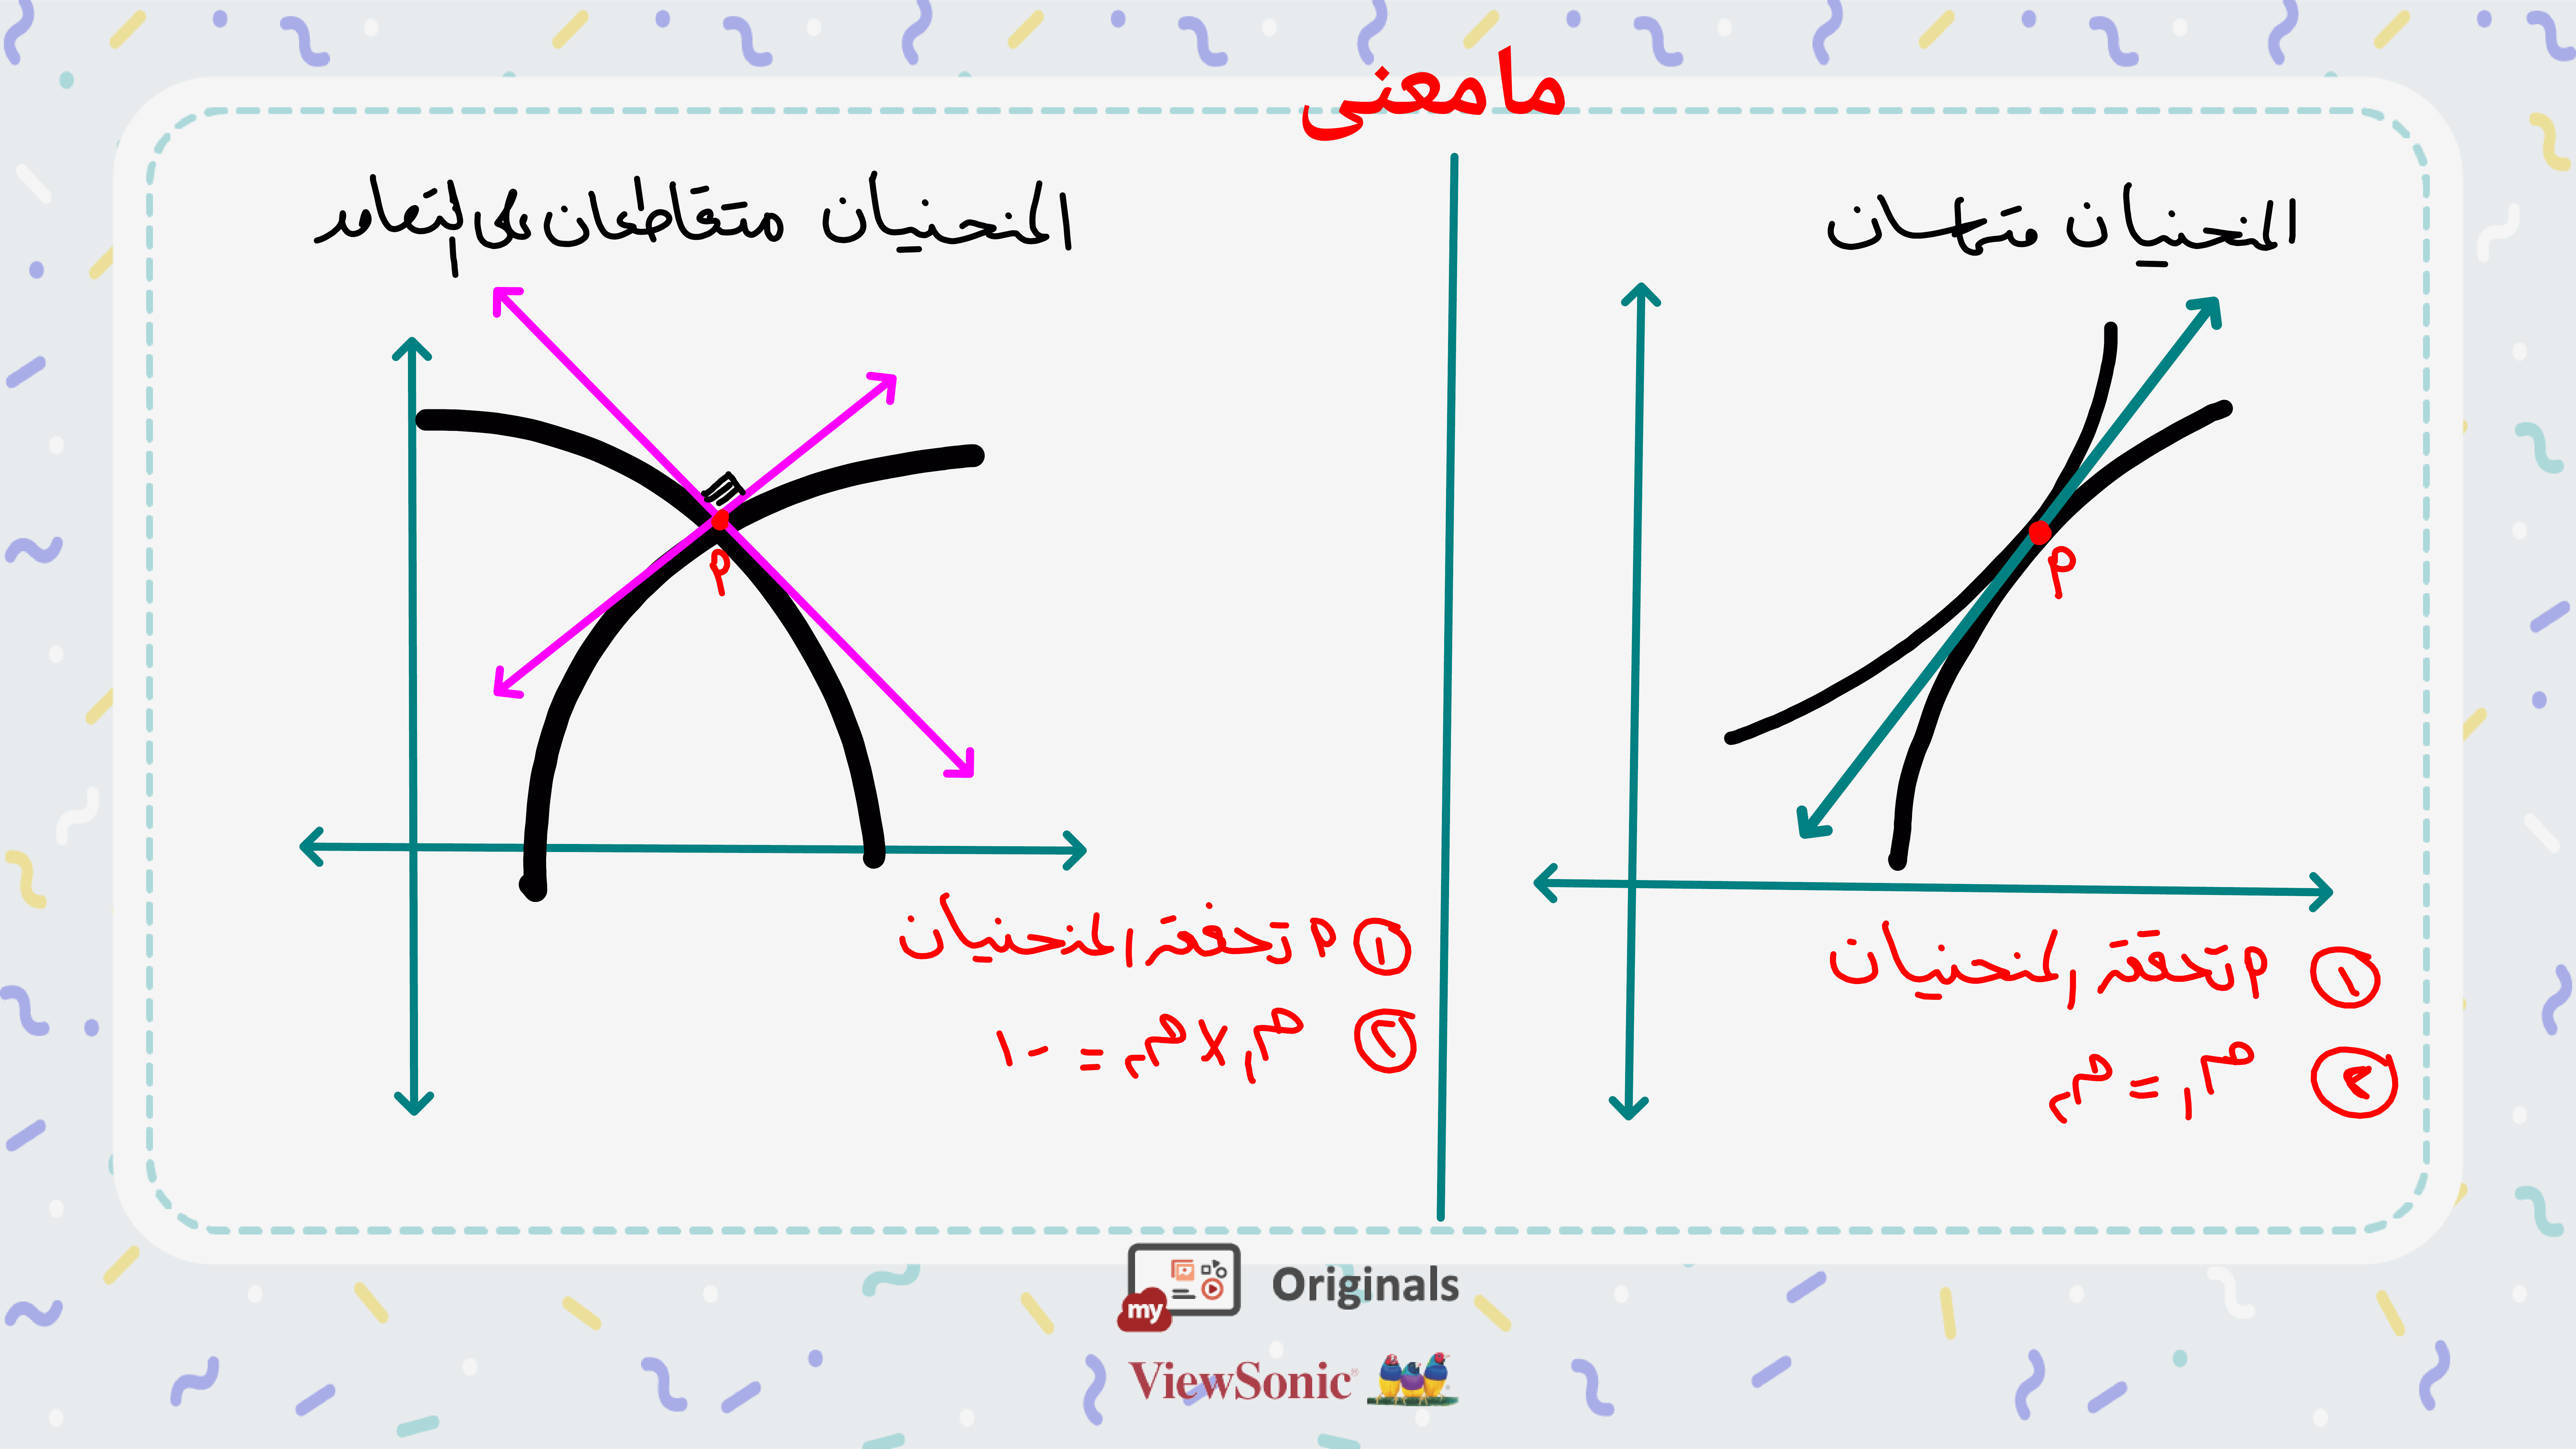 مامعنى
المنحنيان متماسان
م
① م تحققه المنحنيان
② م١ = م٢
المنحنيان متقاطعان على التعامد
م
① م تحققه المنحنيان
② م١ × م٢ = -١
my Originals
ViewSonic